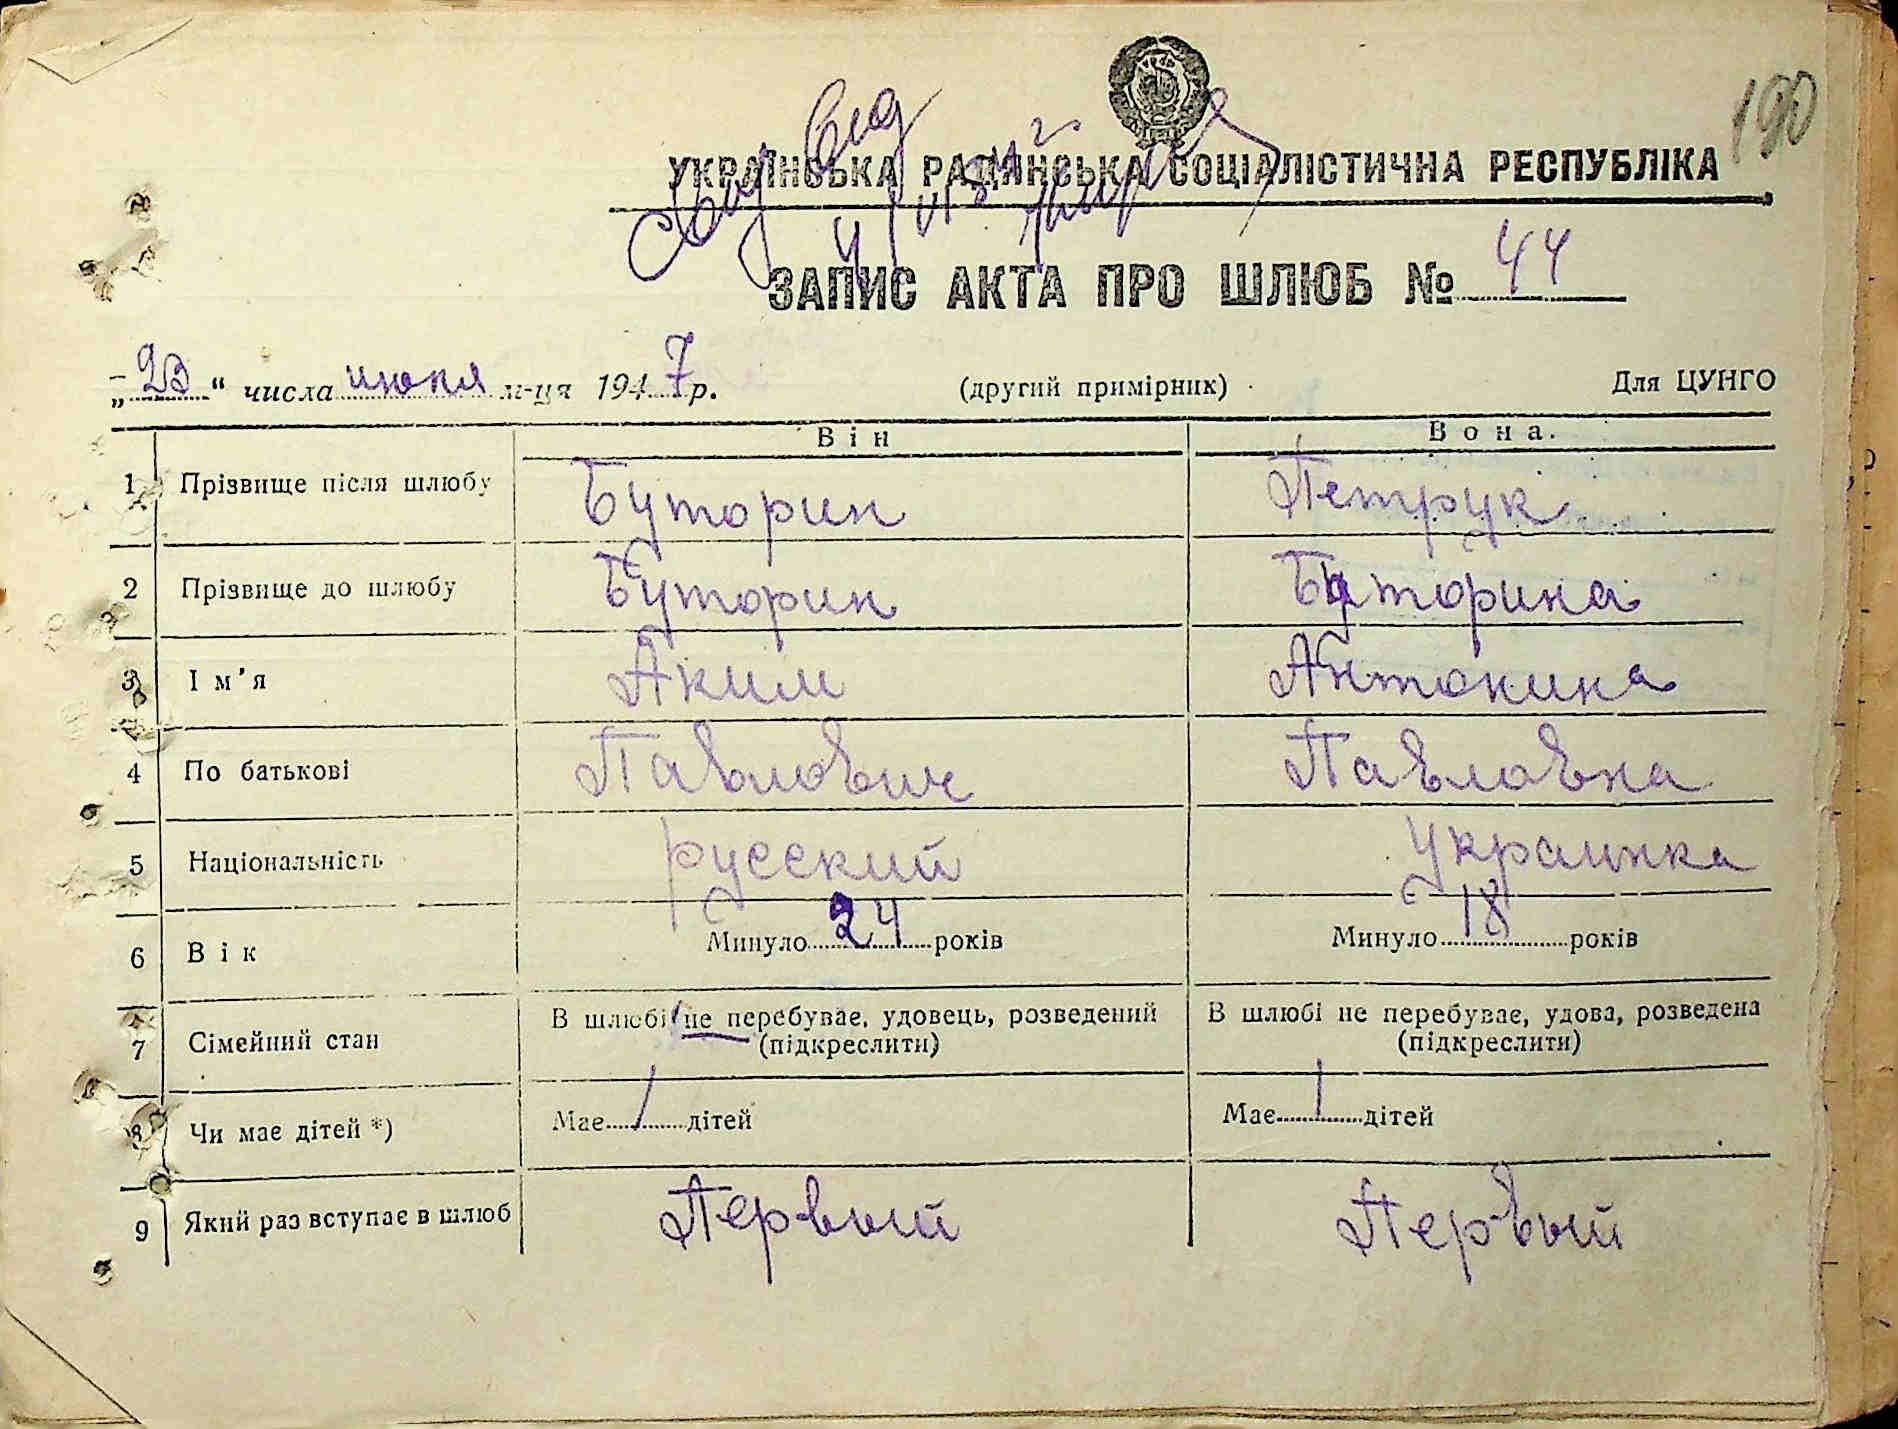 190
УКРАЇНСЬКА РАДЯНСЬКА СОЦІАЛІСТИЧНА РЕСПУБЛІКА
ЗАПИС АКТА ПРО ШЛЮБ № 44
„23“ числа июня м-ця 1947 р. (другий примірник) Для ЦУНГО
Він Вона.
1 Прізвище після шлюбу Буторин Петрук
2 Прізвище до шлюбу Буторин Буторина
3 Ім'я Аким Антонина
4 По батькові Павлович Павловна
5 Національність русский украинка
6 Вік Минуло 24 років Минуло 18 років
7 Сімейний стан В шлюбі не перебуває, удовець, розведений (підкреслити) В шлюбі не перебуває, удова, розведена (підкреслити)
8 Чи має дітей *) Має / дітей Має / дітей
9 Який раз вступає в шлюб Первый Первый